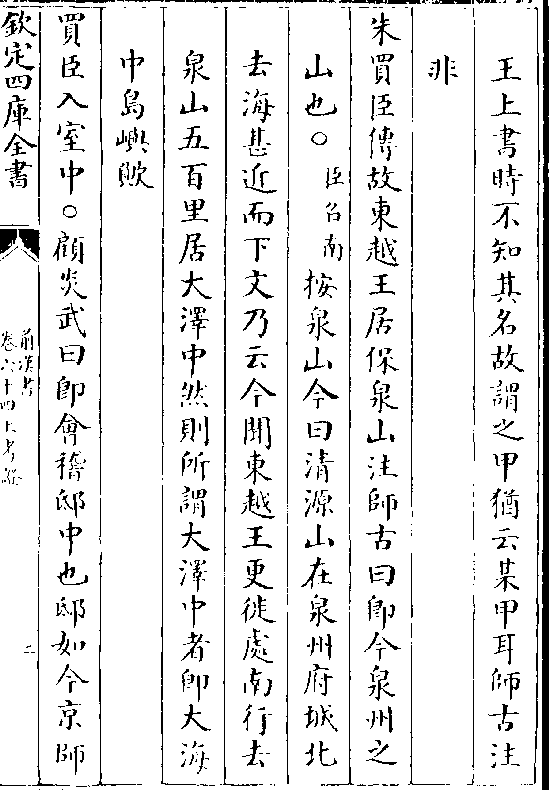 王上書時不知其名故謂之甲猶云某甲耳師古注
非
朱買臣傳故東越王居保泉山注師古曰卽今泉州之
山也○臣召南按泉山今曰清源山在泉州府城北
去海甚近而下文乃云今聞東越王更徙處南行去
泉山五百里居大澤中然則所謂大澤中者卽大海
中島嶼歟
買臣入室中○顧炎武曰卽會稽邸中也邸如今京師
欽定四庫全書
前漢書
卷六十四上考證
二